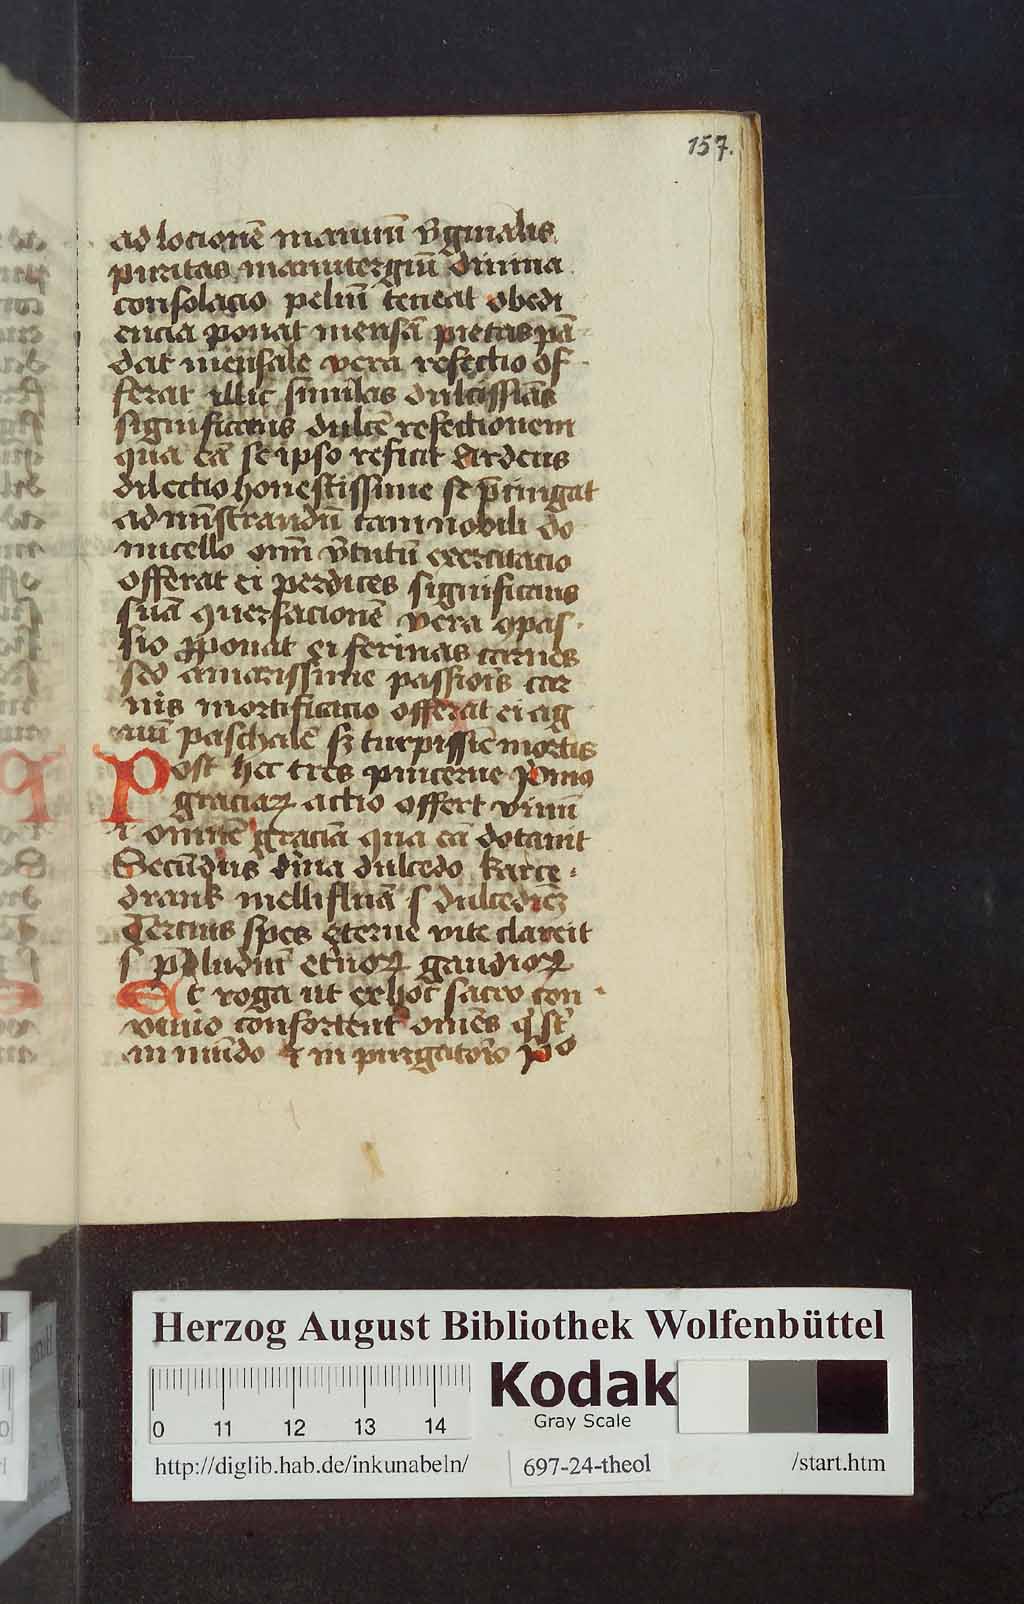 157.
ad locionē manuū v̄ginalis
puritas manutergiū diuina
consolacio peluī teneat obedi
encia ponat mensā pietas pā
dat mensale vera refectio of
ferat illic similas dulcissīas
significans dulcē refectionem
qua eā se ipso reficit Ardens
dilectio honestissime se p̄cingat
ad mīstrandū tam nobili do
micello omī v̄tutū exercitacio
offerat ei perdices significans
suā ꝯuersacionē vera ꝯpas
sio apponat ei ferinas carnes
sed amarissime passiois car
nis mortificacio offerat ei ag
nū paschalē sꝫ turpissīe mortis
Post hec tres pincerne Primꝯ
graciaꝝ actio offert vinū
i omnē graciā qua eā dotauit
Secūdus diīna dulcedo karce
drank mellifluā s dulcediēꝫ
Tercius spes eterne vite clareit
s p̄ludiū etnoꝝ gaudioꝝ
Et roga ut ex hoc sacro con
viuio confortent᷑ omēs q̇ st̄
in mūdo ⁊ in purgatoīo
Herzog August Bibliothek Wolfenbüttel
Kodak
Gray Scale
0 11 12 13 14
http://diglib.hab.de/inkunabeln/ 697-24-theol /start.htm